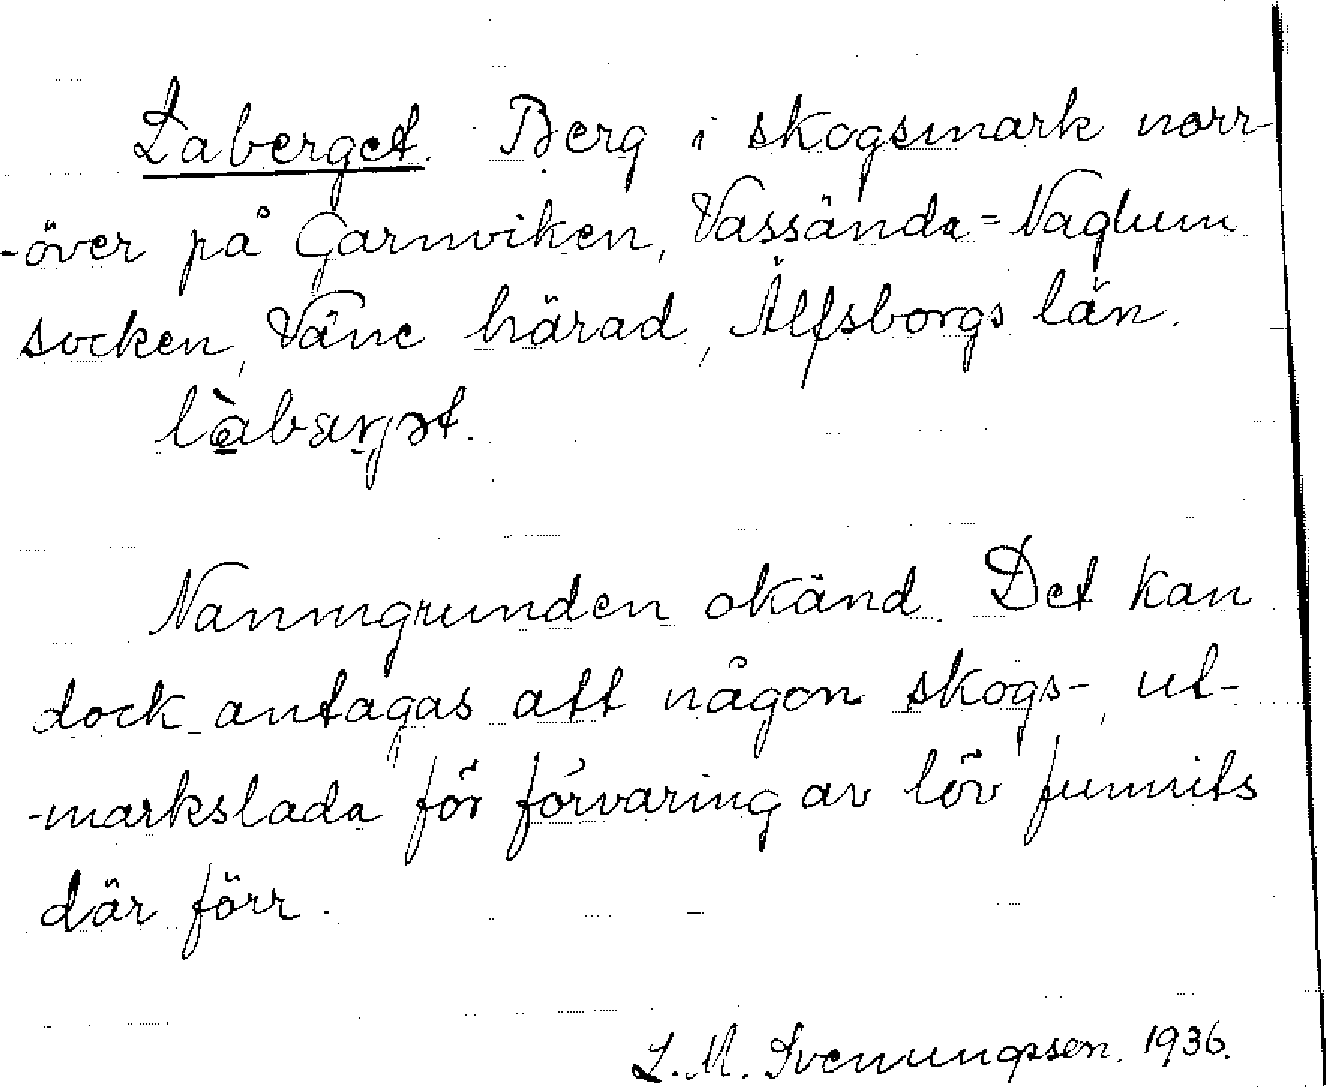 Laberget. Berg i skogsmark norr-
-över på Garnviken, Vassända-Naglum
socken, Väne härad, Älfsborgs län.
Namngrunden okänd. Det kan
dock antagas att någon skogs-, ut-
-markslada för förvaring av löv funnits
där förr.
L. M. Svenungsson. 1936.